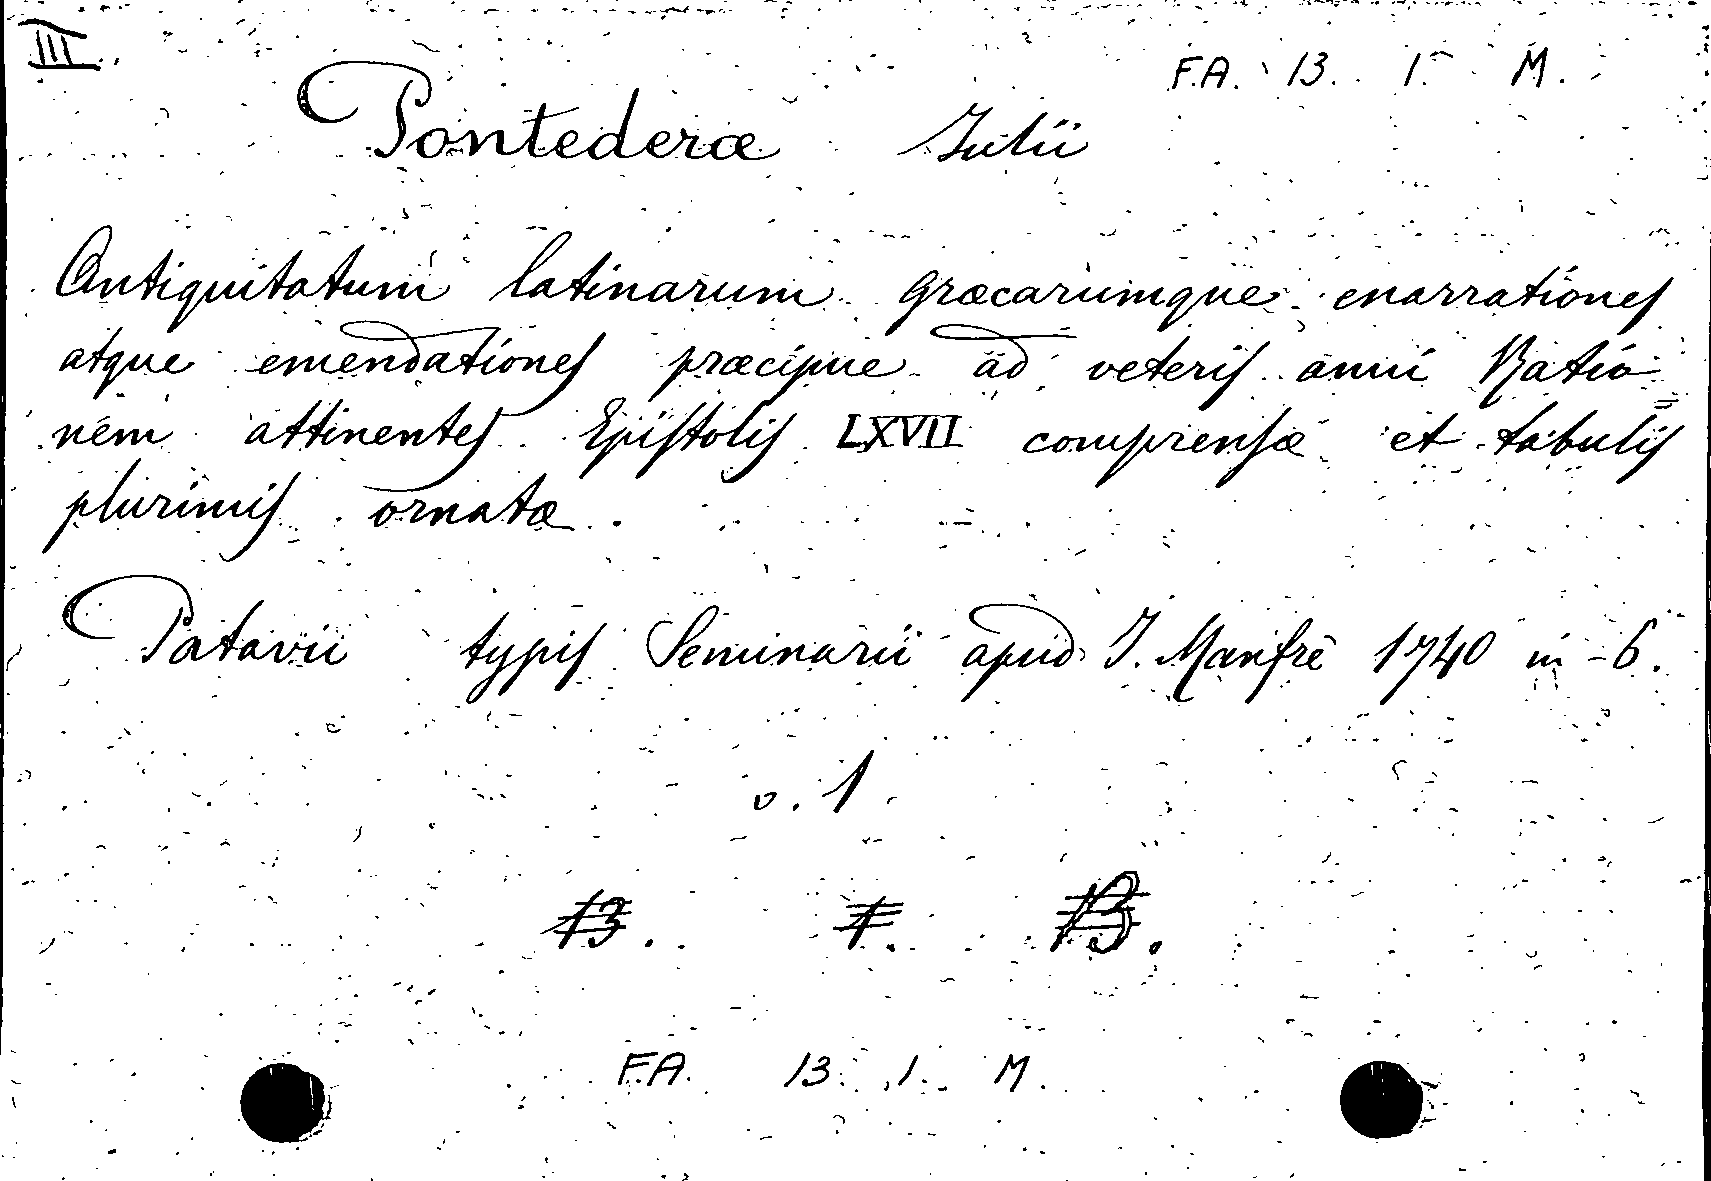 III.
F.A. 13. 1. M.
Pontederæ Julii
Antiquitatum latinarum græcarumque enarrationes
atque emendationes præcipue ad veteris anni Ratio=
nem attinentes Epistolis LXVII comprensæ et tabulis
plurimis ornatæ.
Patavii typis Seminarii apud J. Manfrè 1740 in-6.
v. 1.
13. 1. B.
F.A. 13. 1. M.